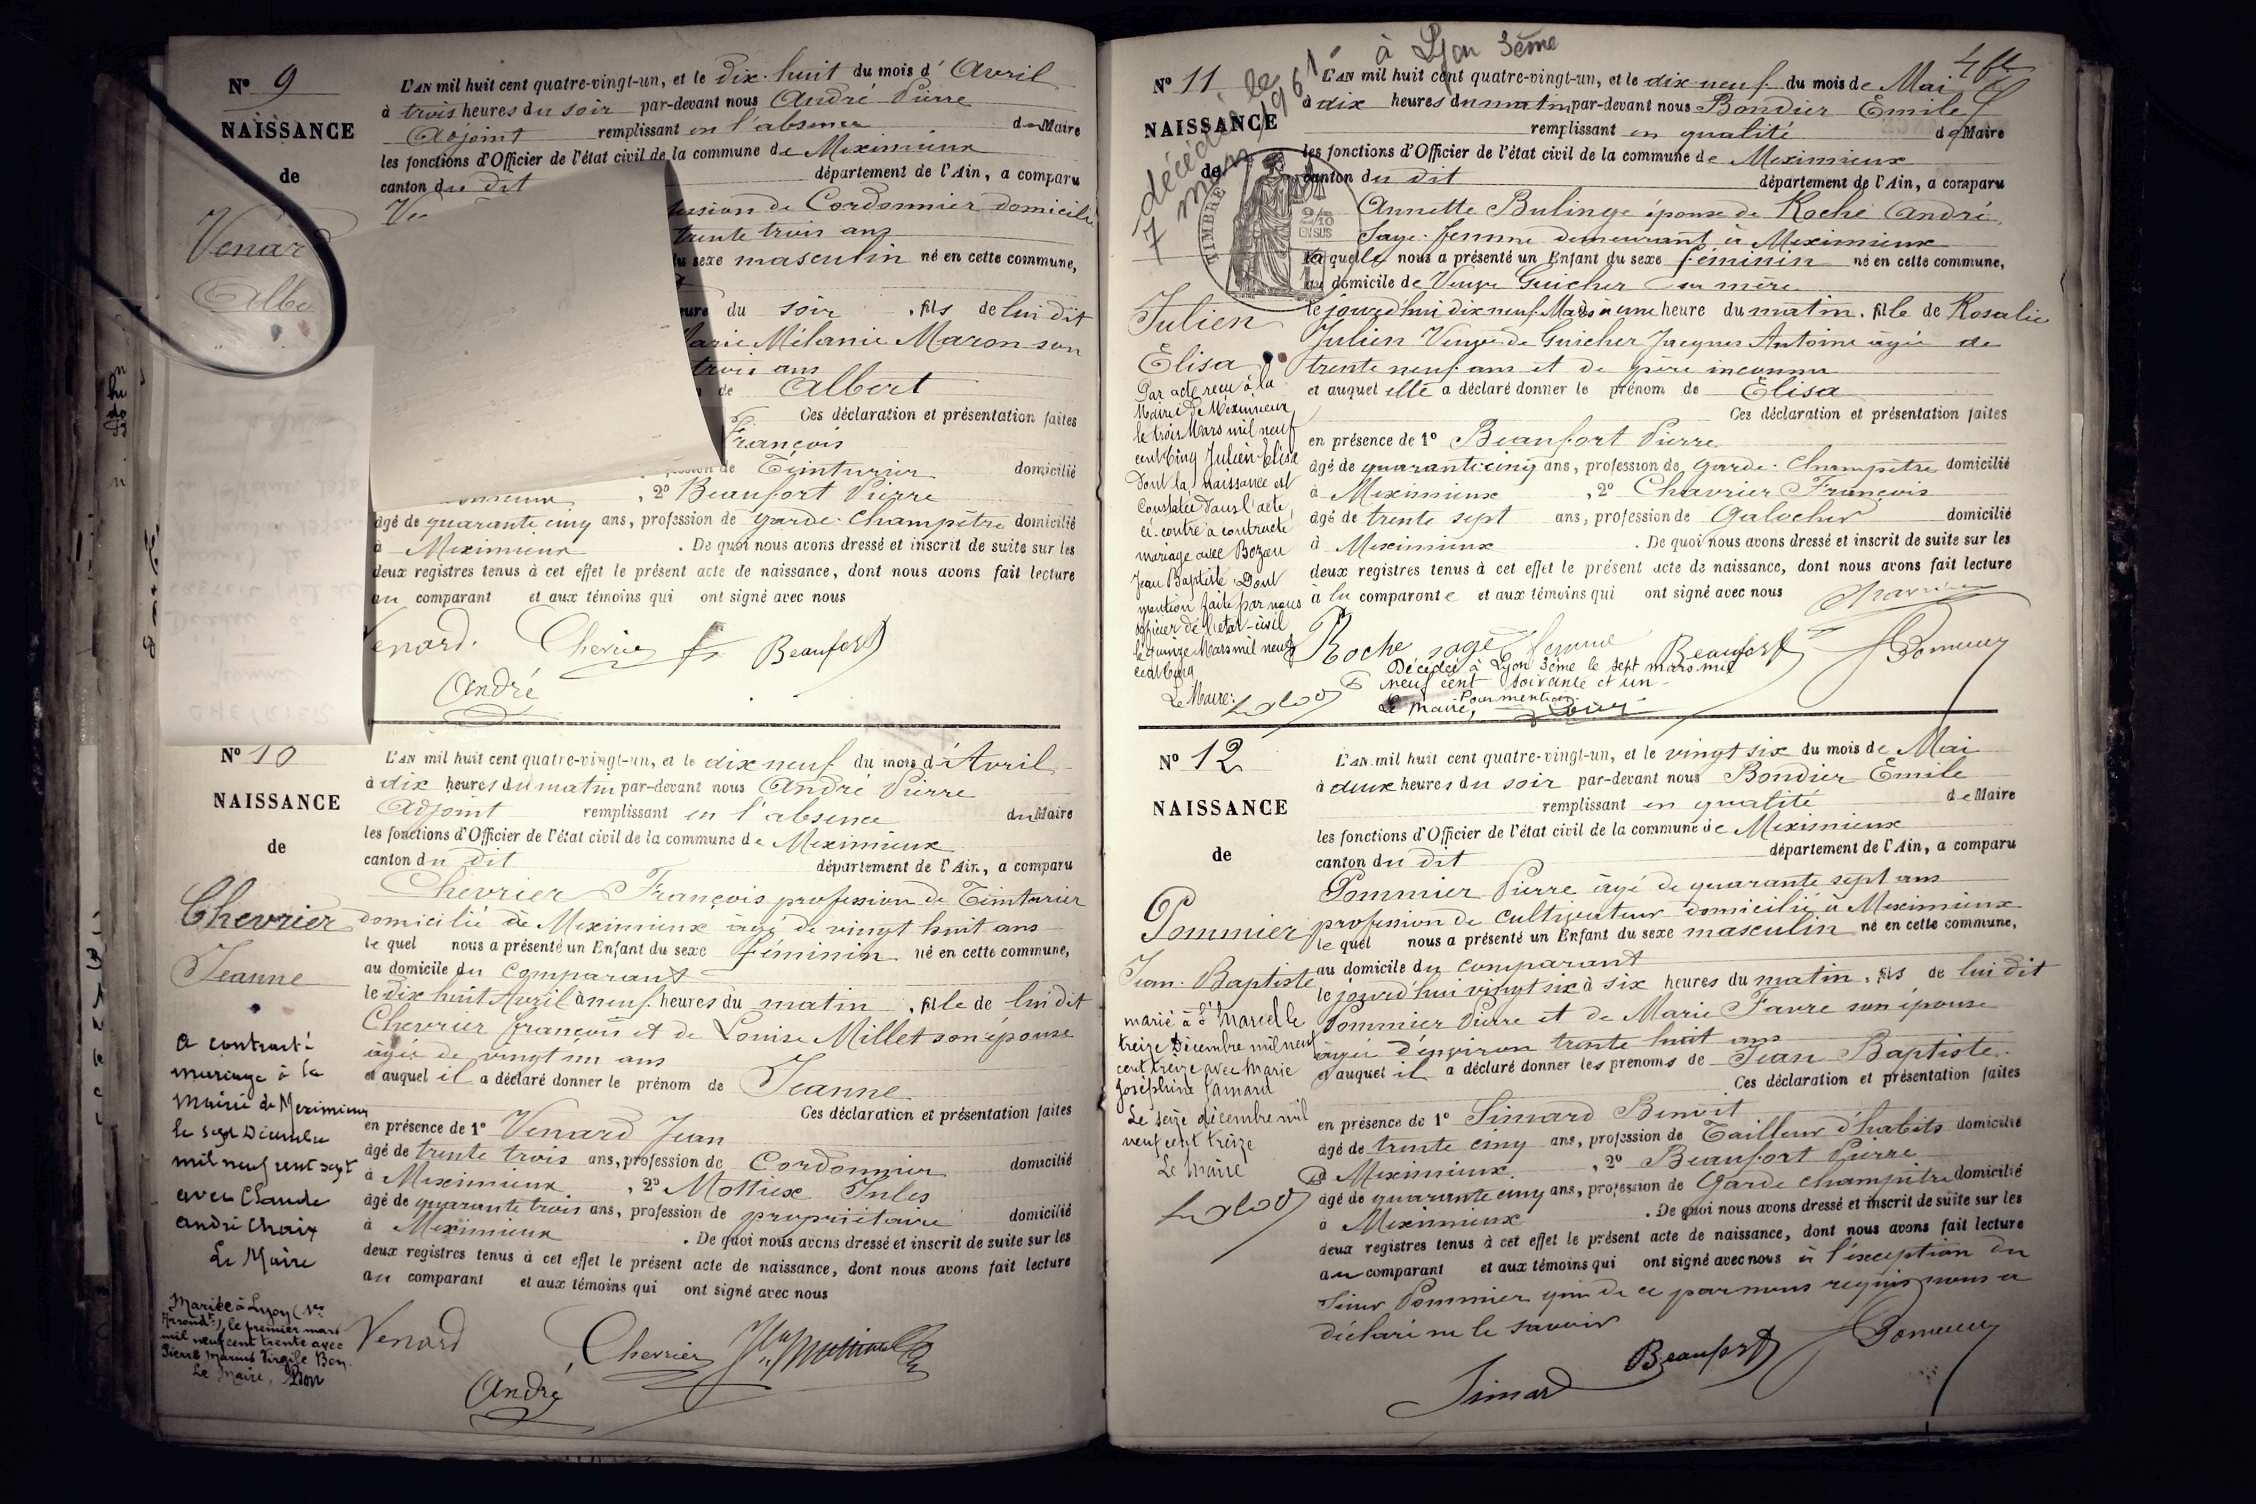 Nº 9
NAISSANCE
de
Venar
Albe
L'AN mil huit cent quatre-vingt-un, et le dix-huit du mois d'Avril
à trois heures du soir par-devant nous André Pierre
Adjoint remplissant en l'absence du Maire
les fonctions d'Officier de l'état civil de la commune de Meximieux
canton du dit département de l'Ain, a comparu
Ve
ession de Cordonnier domicilié
trente trois ans
du sexe masculin né en cette commune,
eure du soir, fils de lui dit
Marie Mélanie Maron son
trois ans
de Albert
Ces déclaration et présentation faites
François
ession de Teinturier domicilié
, 2º Beaufort Pierre
âgé de quarante cinq ans, profession de garde-champêtre domicilié
à Meximieux. De quoi nous avons dressé et inscrit de suite sur les
deux registres tenus à cet effet le présent acte de naissance, dont nous avons fait lecture
au comparant et aux témoins qui ont signé avec nous
enard. Beaufort
André
Nº 10
NAISSANCE
de
Chevrier
Jeanne
a contracté
mariage à la
mairie de Meximieux
le sept Décembre
mil neuf cent sept
avec Claude
André Chaix
Le Maire
Mariée à Lyon (1er
Arrondt), le premier mars
mil neuf cent trente avec
Pierre Marius Virgile Bon.
Le Maire,
L'AN mil huit cent quatre-vingt-un, et le dix neuf du mois d'Avril
à dix heures du matin par-devant nous André Pierre
Adjoint remplissant en l'absence du Maire
les fonctions d'Officier de l'état civil de la commune de Meximieux
canton du dit département de l'Ain, a comparu
Chevrier François profession de Teinturier
domicilié à Meximieux âgé de vingt huit ans
le quel nous a présenté un Enfant du sexe féminin né en cette commune,
au domicile du comparant
le dix huit Avril à neuf heures du matin, fille de lui dit
Chevrier françois et de Louise Millet son épouse
âgée de vingt un ans
et auquel il a déclaré donner le prénom de Jeanne
Ces déclaration et présentation faites
en présence de 1º Venard Jean
âgé de trente trois ans, profession de Cordonnier domicilié
à Meximieux, 2º Mottiex Jules
âgé de quarante trois ans, profession de propriétaire domicilié
à Meximieux. De quoi nous avons dressé et inscrit de suite sur les
deux registres tenus à cet effet le présent acte de naissance, dont nous avons fait lecture
au comparant et aux témoins qui ont signé avec nous
Venard Chevrier
André
à Lyon 3ème
décédée le
7 mars 1961
Nº 11
NAISSANCE
de
TIMBRE
2/10
EN SUS
Julien
Elisa
Par acte reçu à la
Mairie de Meximieux
le trois Mars mil neuf
cent cinq Julien Elisa
dont la naissance est
constatée dans l'acte
ci-contre a contracté
mariage avec Bozon
Jean Baptiste. Dont
mention faite par nous
officier de l'état-civil
le quinze Mars mil neuf
cent cinq
Le Maire:
L'AN mil huit cent quatre-vingt-un, et le dix neuf du mois de Mai
à dix heures du matin par-devant nous Bondier Emile
remplissant en qualité de Maire
les fonctions d'Officier de l'état civil de la commune de Meximieux
canton du dit département de l'Ain, a comparu
Annette Bulinge épouse de Roche André
Sage-femme demeurant à Meximieux
laquelle nous a présenté un Enfant du sexe féminin né en cette commune,
au domicile de Veuve Guicher sa mère
le jourd'hui dix neuf Mai à une heure du matin, fille de Rosalie
Julien Veuve de Guicher Jacques Antoine âgée de
trente neuf ans et de père inconnu
et auquel elle a déclaré donner le prénom de Elisa
Ces déclaration et présentation faites
en présence de 1º Beaufort Pierre
âgé de quarante cinq ans, profession de garde-champêtre domicilié
à Meximieux, 2º Chavrier François
âgé de trente sept ans, profession de Galocher domicilié
à Meximieux. De quoi nous avons dressé et inscrit de suite sur les
deux registres tenus à cet effet le présent acte de naissance, dont nous avons fait lecture
à la comparante et aux témoins qui ont signé avec nous
Roche sage femme Beaufort
Décédée à Lyon 3ème le sept mars mil
neuf cent soixante et un
Pour mention
Le Maire,
Nº 12
NAISSANCE
de
Pommier
Jean-Baptiste
marié à St Marcel le
treize Décembre mil neuf
cent treize avec Marie
Joséphine Jamard
Le seize décembre mil
neuf cent treize
Le Maire
L'AN mil huit cent quatre-vingt-un, et le vingt six du mois de Mai
à deux heures du soir par-devant nous Bondier Emile
remplissant en qualité de Maire
les fonctions d'Officier de l'état civil de la commune de Meximieux
canton du dit département de l'Ain, a comparu
Pommier Pierre âgé de quarante sept ans
profession de cultivateur domicilié à Meximieux
le quel nous a présenté un Enfant du sexe masculin né en cette commune,
au domicile du comparant
le jourd'hui vingt six à six heures du matin, fils de lui dit
Pommier Pierre et de Marie Favre son épouse
âgée d'environ trente huit ans
et auquel il a déclaré donner les prénoms de Jean Baptiste
Ces déclaration et présentation faites
en présence de 1º Simard Benoit
âgé de trente cinq ans, profession de Tailleur d'habits domicilié
à Meximieux, 2º Beaufort Pierre
âgé de quarante cinq ans, profession de Garde champêtre domicilié
à Meximieux. De quoi nous avons dressé et inscrit de suite sur les
deux registres tenus à cet effet le présent acte de naissance, dont nous avons fait lecture
au comparant et aux témoins qui ont signé avec nous à l'exception du
sieur Pommier qui de ce par nous requis nous a
déclaré ne le savoir
Simard Beaufort